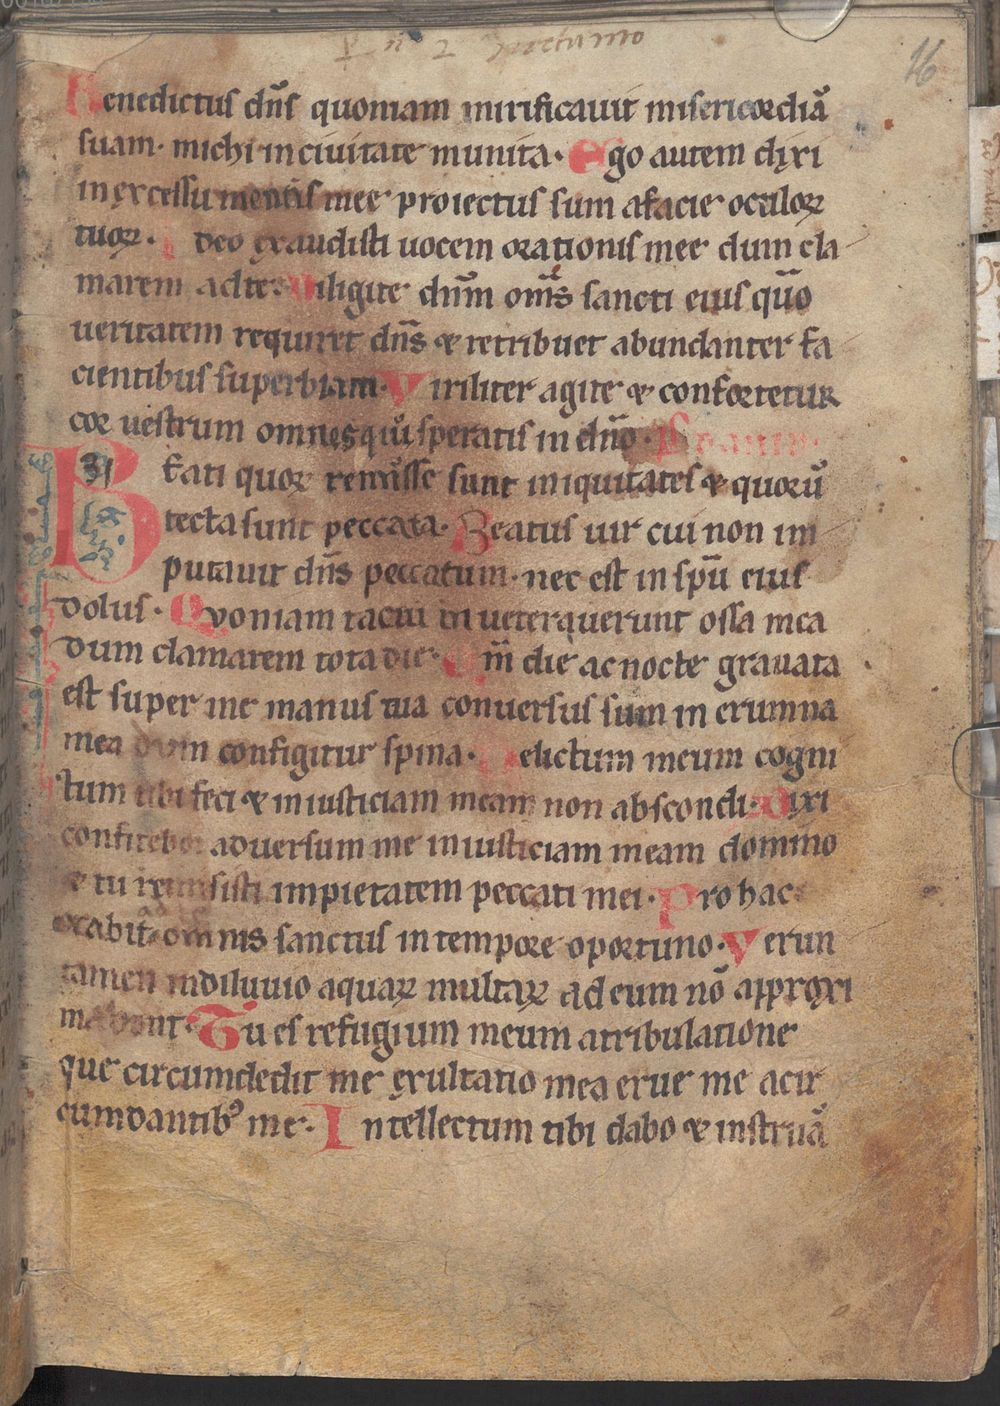 16
Benedictus dñs quoniam mirificauit misericordiã
suam· michi in ciuitate munita· ego autem dixi
in excessu mentis mee proiectus sum a facie oculoꝝ
tuoꝝ· Ideo exaudisti uocem orationis mee dum cla
marem ad te· Diligite dñm om̃s sancti eius quõ
ueritatem requiret dñs & retribuet abundanter fa
cientibus superbiam· Viriliter agite & confortetur
cor uestrum omnes qui speratis in dño·
31
Beati quoꝝ remisse sunt iniquitates & quorũ
tecta sunt peccata· Beatus uir cui non im
putauit dñs peccatum· nec est in spũ eius
dolus· Quoniam tacui inueterquerunt ossa mea
dum clamarem tota die· Qm̃ die ac nocte grauata
est super me manus tua conuersus sum in erumna
mea dum configitur spina· Delictum meum cogni
tum tibi feci & iniusticiam meam non abscondi· Dixi
confitebor aduersum me iniusticiam meam domino
& tu remisisti impietatem peccati mei· Pro hac
orabit omnis sanctus in tempore oportuno· Verun
tamen in diluuio aquaꝝ multaꝝ ad eum nõ approxi
mabunt· Tu es refugium meum a tribulatione
que circumdedit me exultatio mea erue me a cir
cumdantibꝰ me· Intellectum tibi dabo & instruã